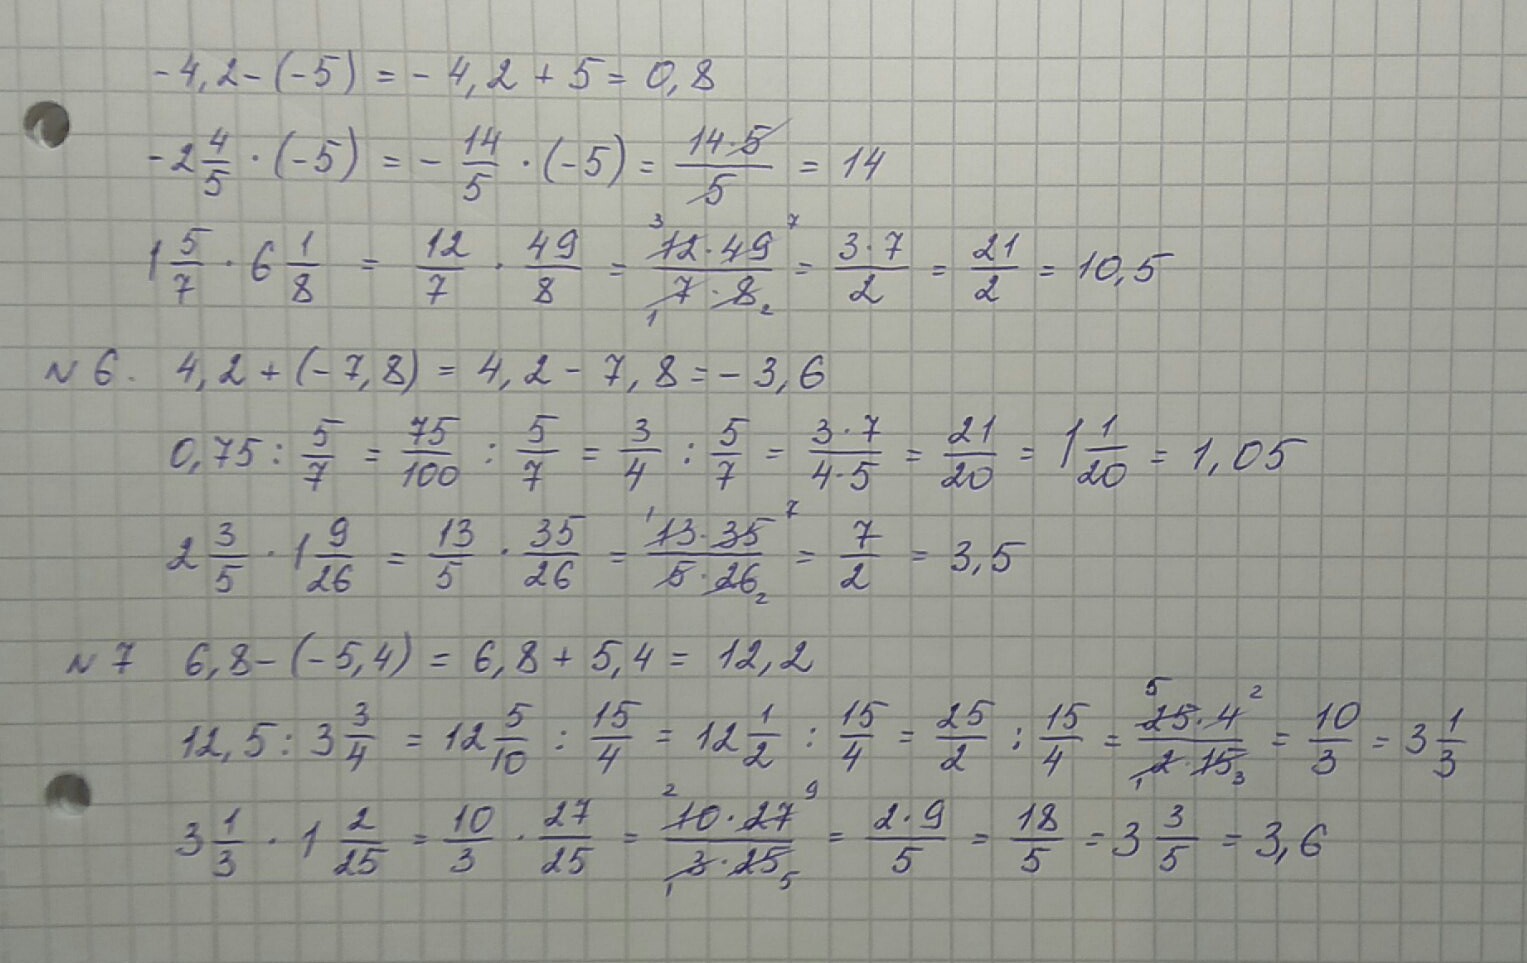 -4,2-(-5) = -4,2+5 = 0,8
-2 4/5 · (-5) = - 14/5 · (-5) = 14·5/5 = 14
1 5/7 · 6 1/8 = 12/7 · 49/8 = 3 12·49 7 / 1 7·8 2 = 3·7/2 = 21/2 = 10,5
N 6. 4,2+(-7,8) = 4,2-7,8 = -3,6
0,75 : 5/7 = 75/100 : 5/7 = 3/4 : 5/7 = 3·7/4·5 = 21/20 = 1 1/20 = 1,05
2 3/5 · 1 9/26 = 13/5 · 35/26 = 1 13·35 7 / 5·26 2 = 7/2 = 3,5
N 7 6,8-(-5,4) = 6,8+5,4 = 12,2
12,5 : 3 3/4 = 12 5/10 : 15/4 = 12 1/2 : 15/4 = 25/2 : 15/4 = 5 25·4 2 / 1 2·15 3 = 10/3 = 3 1/3
3 1/3 · 1 2/25 = 10/3 · 27/25 = 2 10·27 9 / 1 3·25 5 = 2·9/5 = 18/5 = 3 3/5 = 3,6